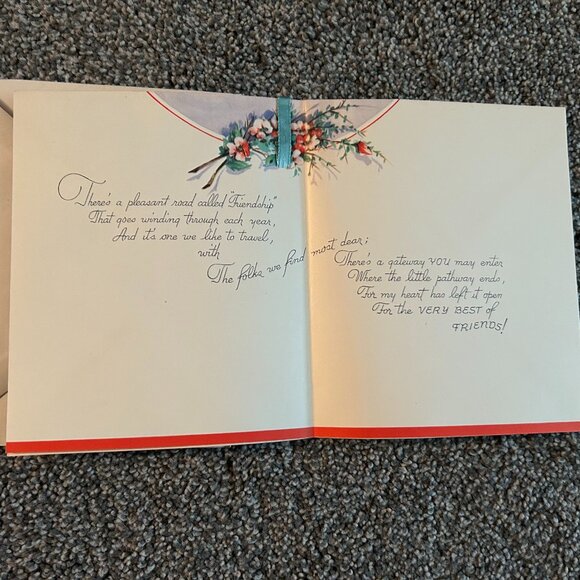 There's a pleasant road called "Friendship"
That goes winding through each year,
And it's one we like to travel,
with
The folks we find most dear;
There's a gateway YOU may enter
Where the little pathway ends,
For my heart has left it open
For the VERY BEST of
FRIENDS!